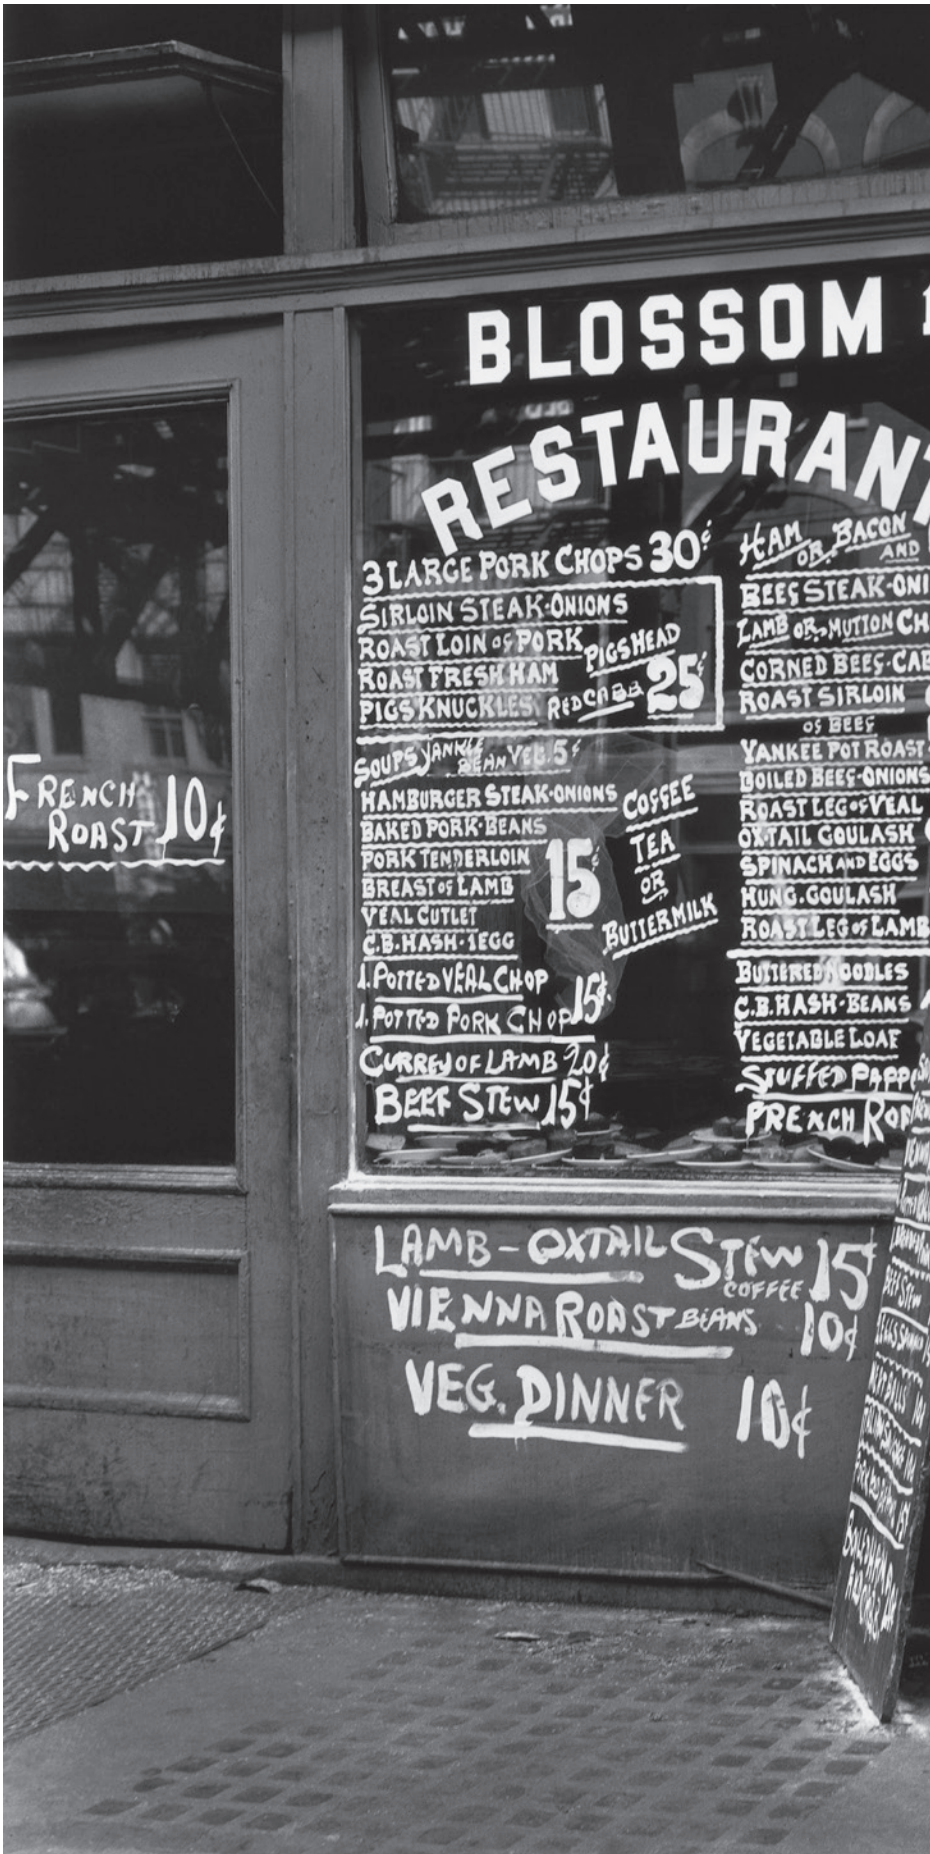 BLOSSOM
RESTAURANT
3 LARGE PORK CHOPS 30¢
SIRLOIN STEAK·ONIONS
ROAST LOIN OF PORK
ROAST FRESH HAM
PIGS KNUCKLES
PIGS HEAD
RED CABB 25¢
SOUPS YANKEE BEAN VEG. 5¢
HAMBURGER STEAK·ONIONS
BAKED PORK·BEANS
PORK TENDERLOIN
BREAST OF LAMB
VEAL CUTLET
C.B. HASH·1 EGG
15¢
COFFEE
TEA
OR
BUTTERMILK
1. POTTED VEAL CHOP
1. POTTED PORK CHOP
15¢
CURREY OF LAMB 20¢
BEEF STEW 15¢
HAM OR BACON
AND
BEEF STEAK·ONI
LAMB OR MUTTON CH
CORNED BEEF·CAB
ROAST SIRLOIN
OF BEEF
YANKEE POT ROAST
BOILED BEEF·ONIONS
ROAST LEG OF VEAL
OXTAIL GOULASH
SPINACH AND EGGS
HUNG. GOULASH
ROAST LEG OF LAMB
BUTTERED NOODLES
C.B. HASH·BEANS
VEGETABLE LOAF
STUFFED PEPPE
FRENCH ROA
FRENCH
ROAST 10¢
LAMB-OXTAIL STEW 15¢
COFFEE
VIENNA ROAST BEANS 10¢
VEG. DINNER 10¢
BEEF STEW
MEAT BALLS 10¢